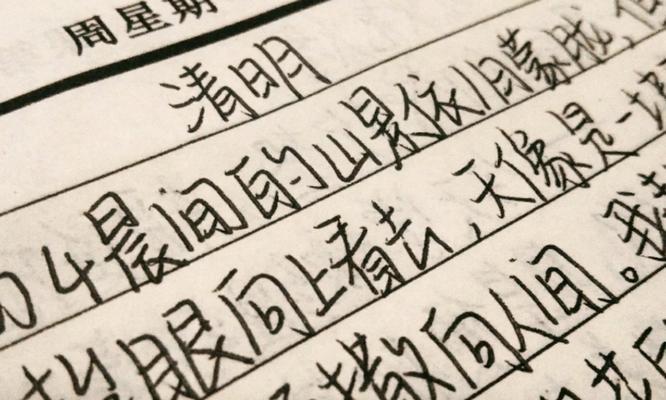 周星期
清明
04晨间的山景依旧蒙胧,但
眼向上看去,天像是一块
散向人间。我